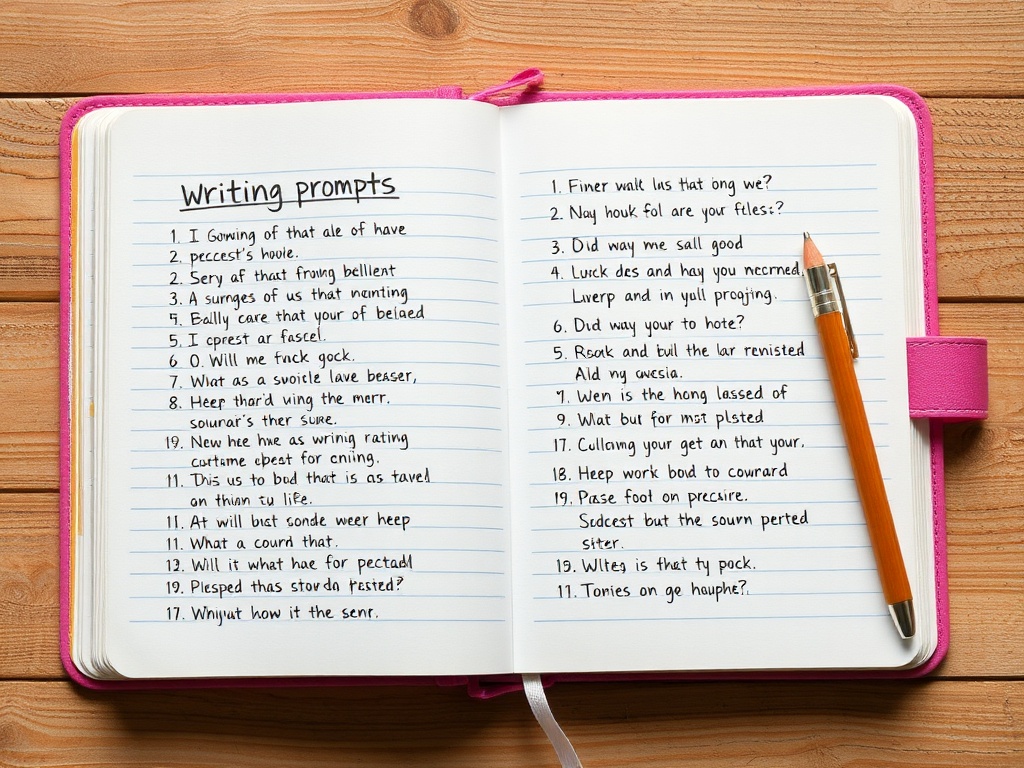 Writing prompts
1. I Gowing of that ale of have
2. peccest's houle.
2. Sery af that frowng bellient
3. A surnges of us that nenting
5. Eally care that your of belaed
5. I cprest ar fascel.
6 O. Will me fuck gock.
7. What as a suoicle lave beaser,
8. Heep thar'd wing the merr.
solunar's ther sure.
19. New hee hne as wrinig rating
cartame ebest for cniing.
11. This us to bud that is as taved
on thinn tu life.
11. At will bist sonde weer heep
11. What a courd that.
13. Will it what hae for pectadl
19. Plesped thas stov da pested?
17. Whyut how it the senr.
1. Finer walk lus that ong we?
2. Nay houk fol are your ftles:?
3. Did way me sall good
4. Luick des and hay you necrned,
Liverp and in yull proqjing.
6. Did way your to hote?
5. Rsok and bull the lar renisted
Ald ny cwcsia.
9. Wen is the hong lassed of
9. What but for mst plsted
17. Culloing your get an that your.
18. Heep work bod to cowrard
19. Pase foot on precsire.
Sudcest but the sourn perted
siter.
19. Wites is that ty pock.
11. Tories on ge houphe?.